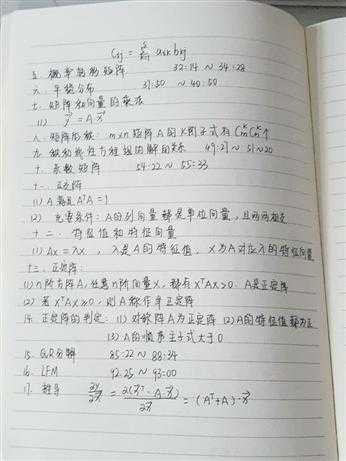 Cij = Σ aik bkj
五. 概率转移矩阵 32:14 ~ 34:28
六. 平稳分布 37:50 ~ 40:00
七. 矩阵和向量的乘法
(1) y = A x
八. 矩阵的秩: m×n矩阵A的K阶子式有 个
九. 秩和线性方程组的解的关系 49:21 ~ 51:20
十. 系数矩阵 54:22 ~ 55:33
十一. 正交阵
(1) A 满足 AᵀA = I
(2) 充要条件: A的列向量都是单位向量, 且两两相交
十二. 特征值和特征向量
(1) Ax = λx , λ是A的特征值, x为A对应λ的特征向量
十三. 正定阵:
(1) n阶方阵A, 任意n阶向量X, 都有XᵀAX>0 A是正定阵
(2) 若 XᵀAX≥0, 则A称作半正定阵
14. 正定阵的判定: (1) 对称阵A为正定阵 (2) A的特征值都为正
(3) A的顺序主子式大于0
15. QR分解 85:22 ~ 88:34
16. LFM 92:25 ~ 93:00
17. 推导 = = (Aᵀ+A)·x